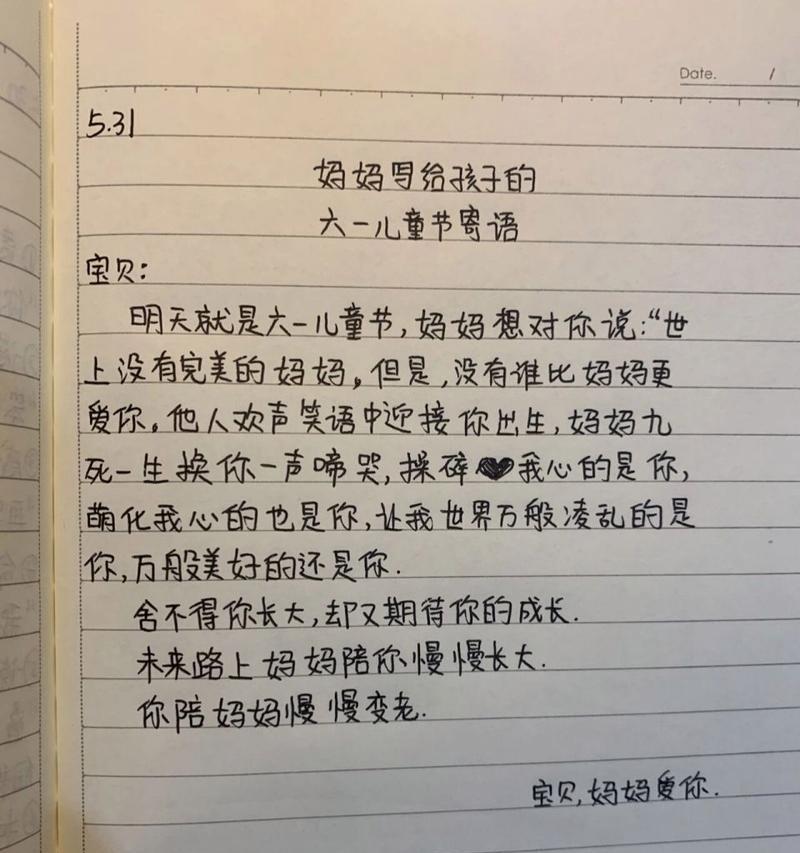 Date. /
5.31
妈妈写给孩子的
六一儿童节寄语
宝贝：
明天就是六一儿童节，妈妈想对你说：“世
上没有完美的妈妈。但是，没有谁比妈妈更
爱你。他人欢声笑语中迎接你出生，妈妈九
死一生换你一声啼哭，操碎我心的是你，
萌化我心的也是你，让我世界万般凌乱的是
你，万般美好的还是你.
舍不得你长大，却又期待你的成长.
未来路上妈妈陪你慢慢长大.
你陪妈妈慢慢变老.
宝贝，妈妈爱你.